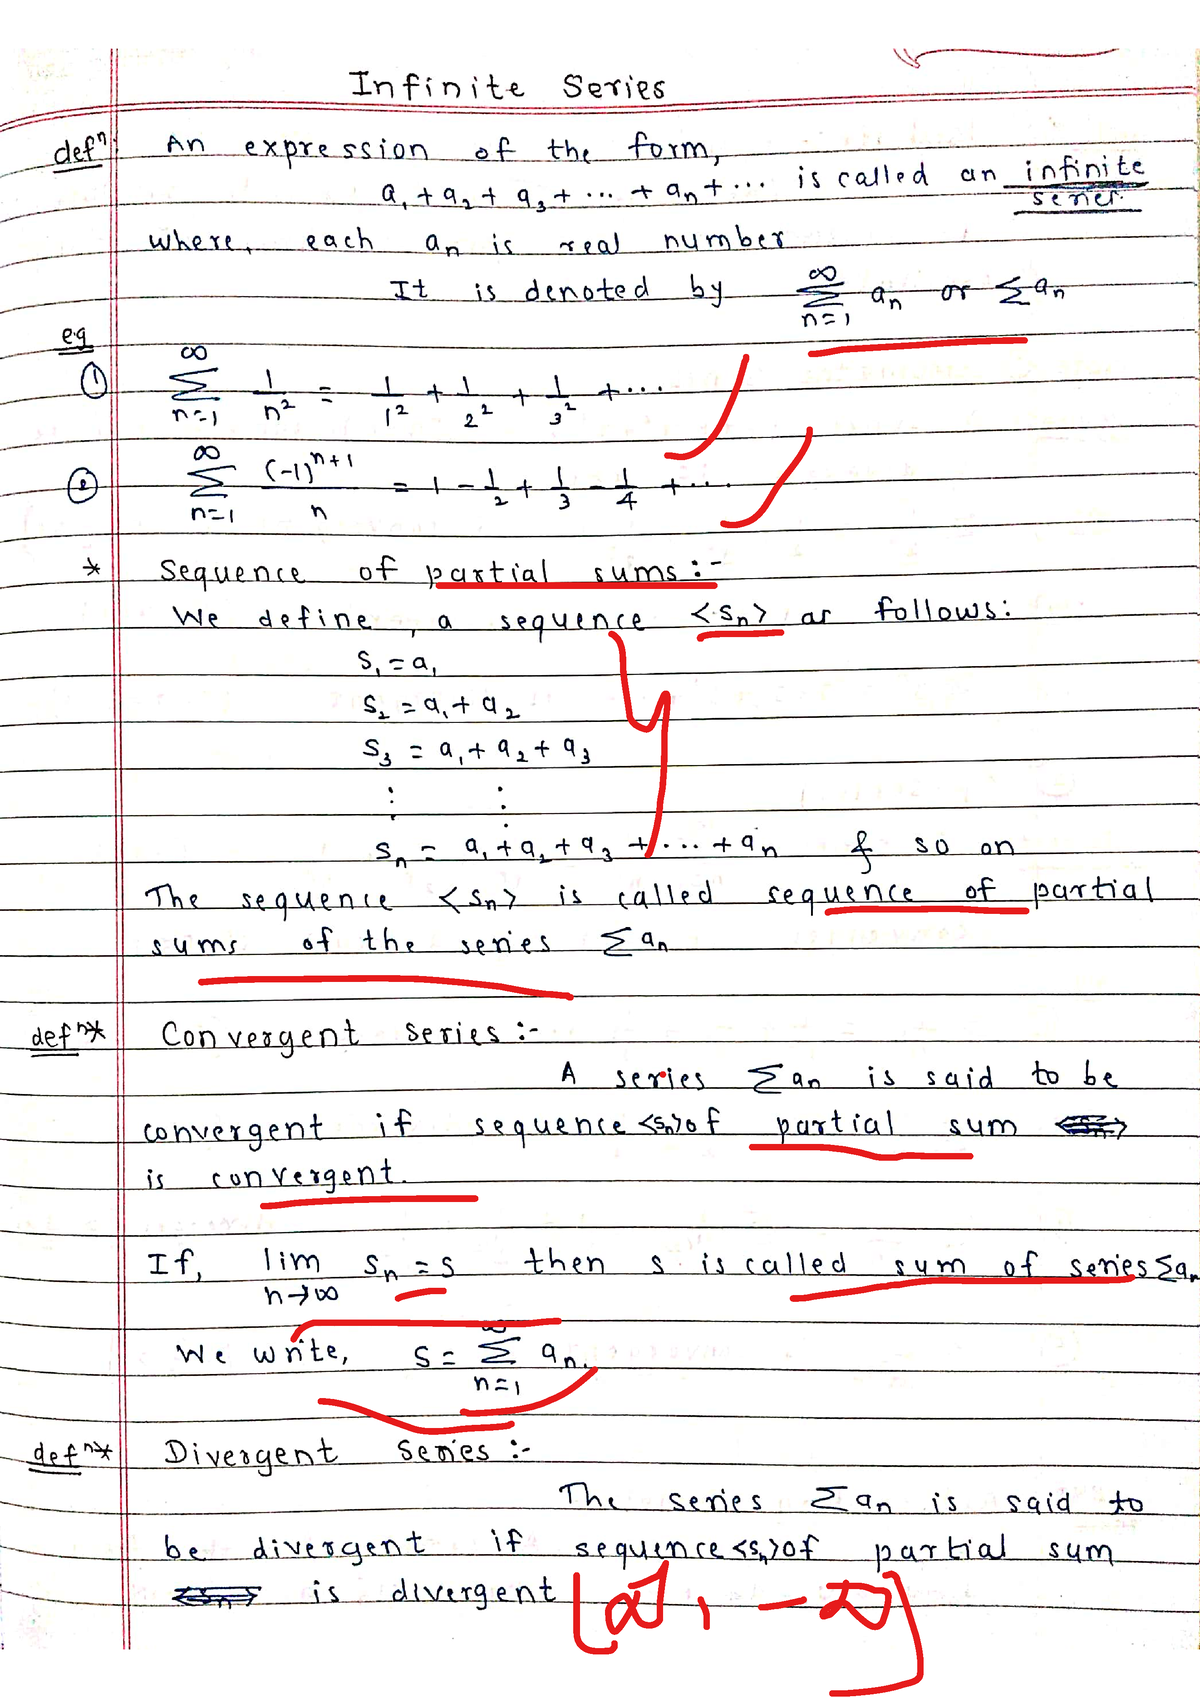 Infinite Series
defⁿ: An expression of the form,
a₁ + a₂ + a₃ + ... + aₙ + ... is called an infinite
series.
where, each aₙ is real number
It is denoted by ∞Σn=1 aₙ or Σaₙ
e.g
① ∞Σn=1 1/n² = 1/1² + 1/2² + 1/3² + ...
② ∞Σn=1 (-1)ⁿ⁺¹/n = 1 - 1/2 + 1/3 - 1/4 + ...
* Sequence of partial sums :-
We define, a sequence <Sₙ> as follows:
S₁ = a₁
S₂ = a₁ + a₂
S₃ = a₁ + a₂ + a₃
⋮ ⋮
Sₙ = a₁ + a₂ + a₃ + ... + aₙ & so on
The sequence <Sₙ> is called sequence of partial
sums of the series Σaₙ
defⁿ* Convergent series :-
A series Σaₙ is said to be
convergent if sequence <Sₙ> of partial sum
is convergent.
If, lim n→∞ Sₙ = S then S is called sum of series Σaₙ
We write, S = ∞Σn=1 aₙ.
defⁿ* Divergent Series :-
The series Σaₙ is said to
be divergent if sequence <Sₙ> of partial sum
is divergent [∞, -∞]